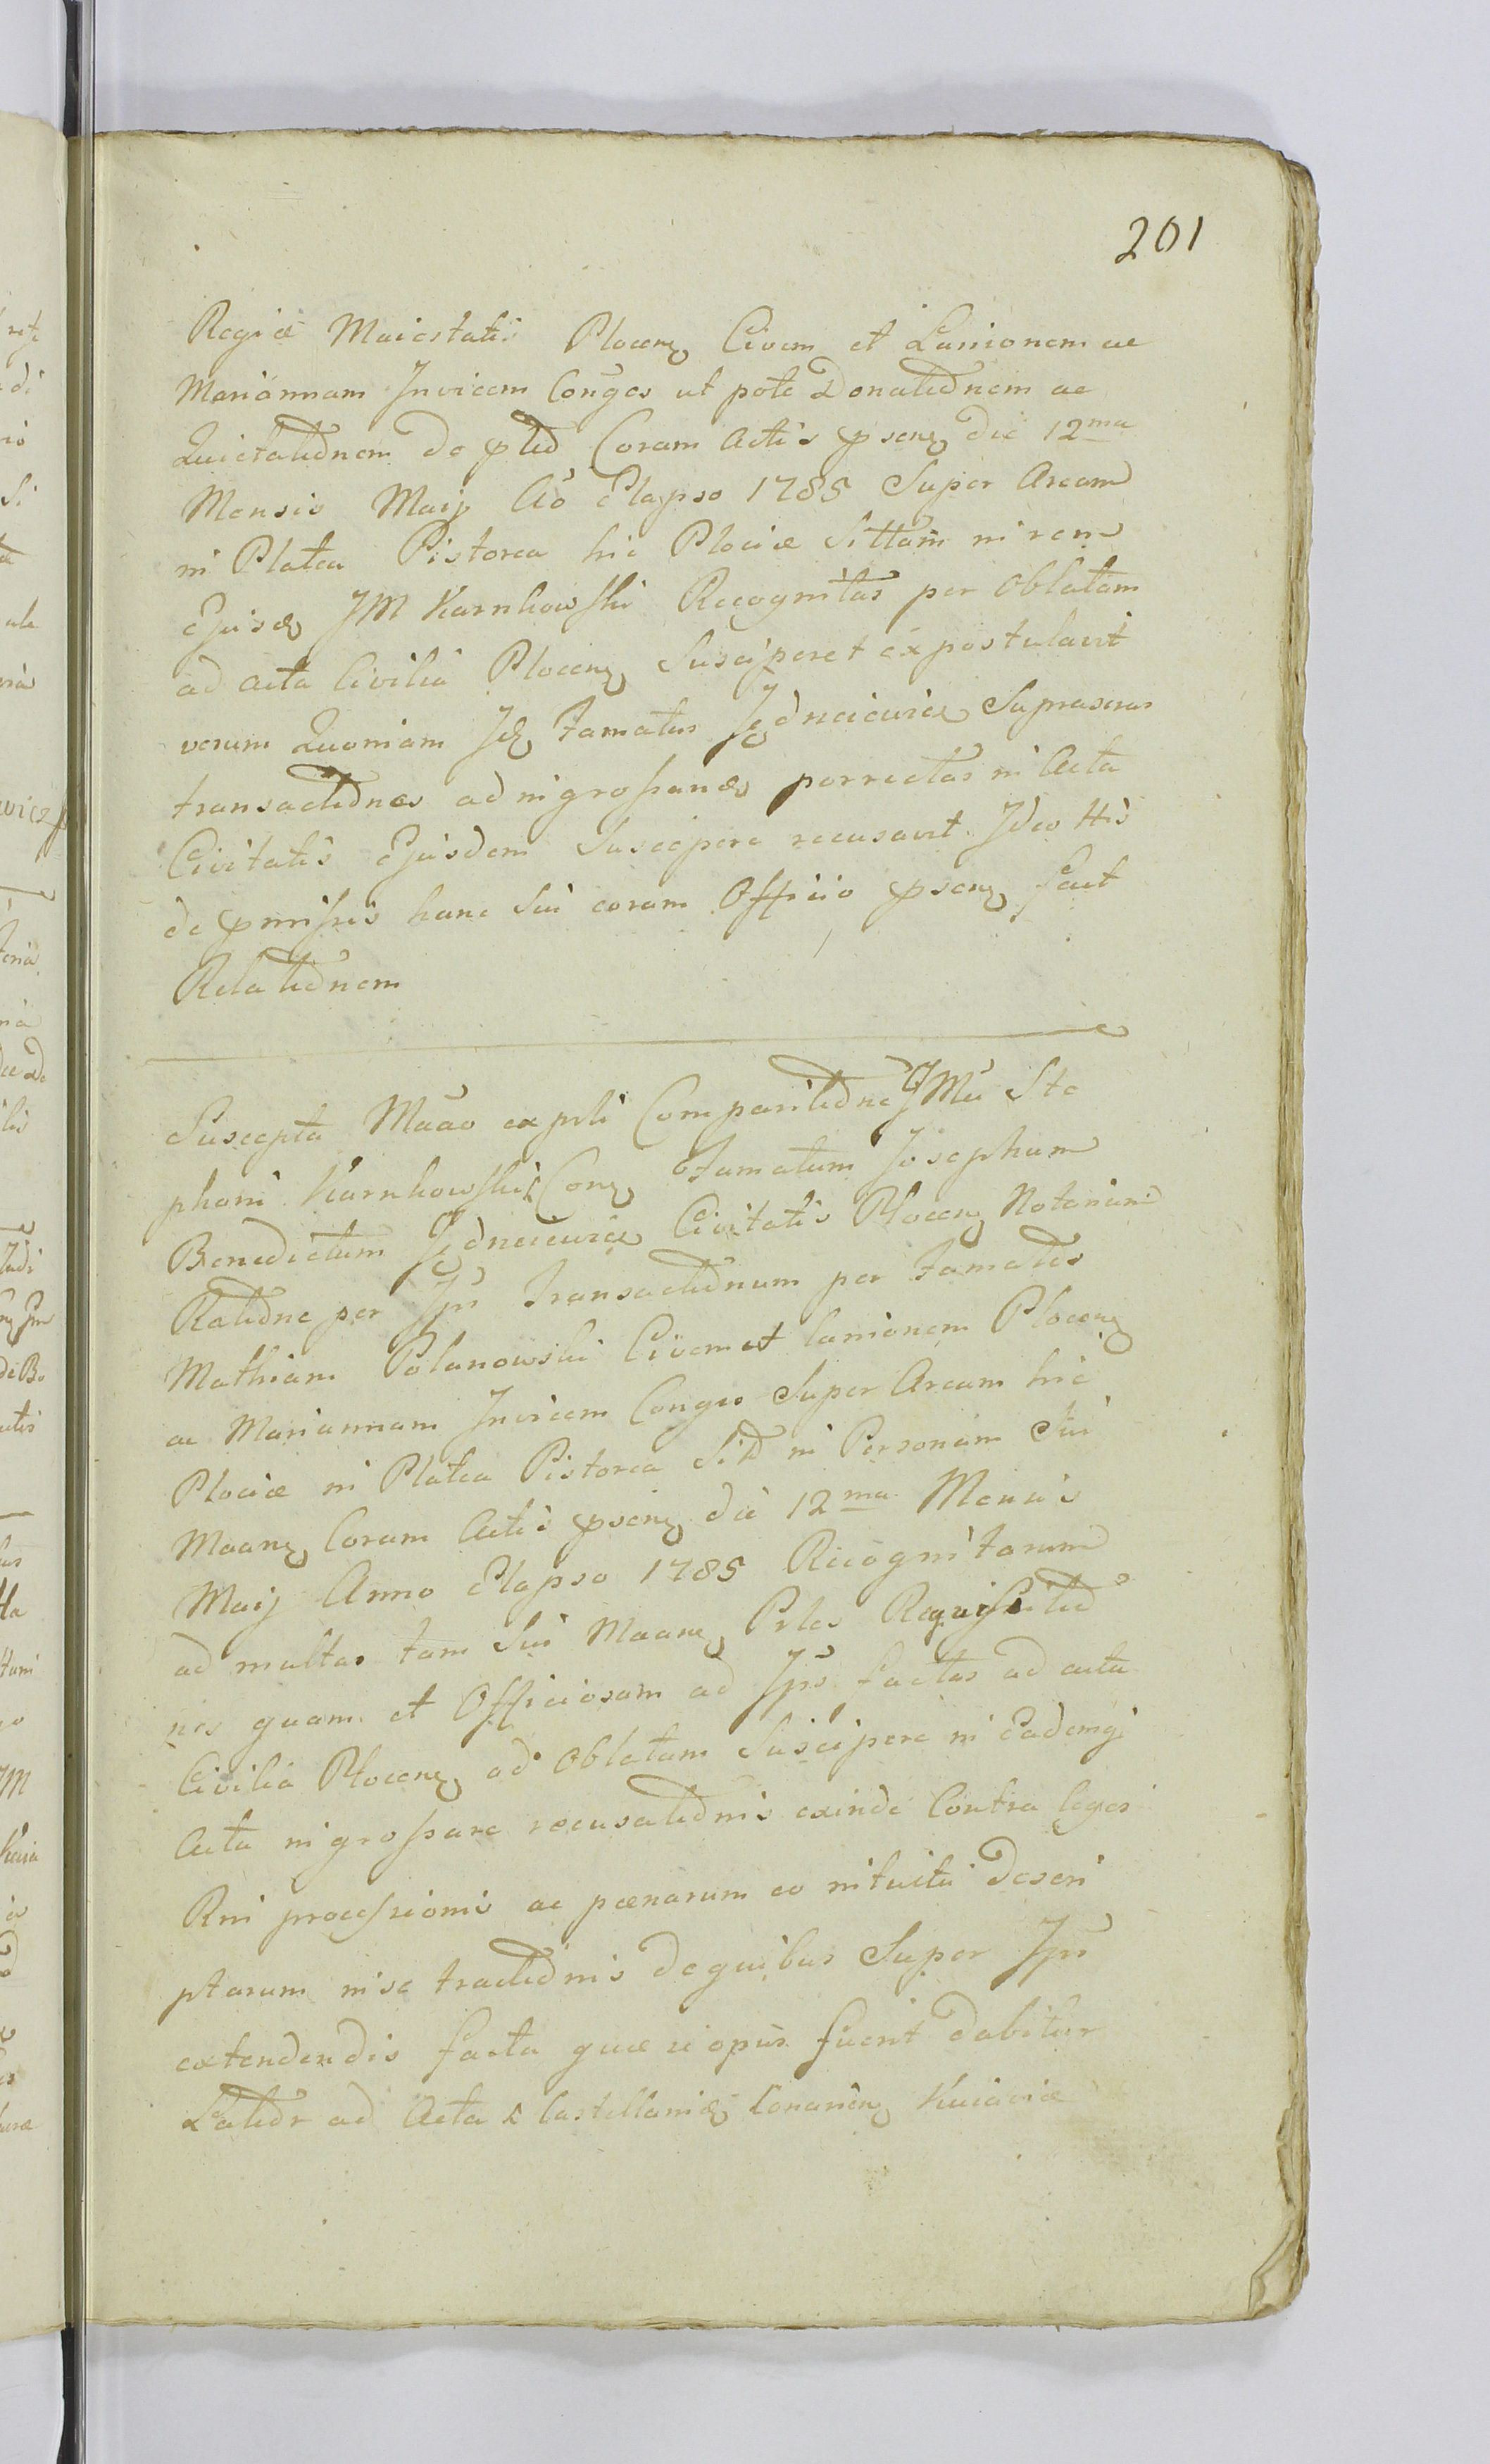 201
Regiæ Maiestatis Plocen Civem et Lanionem ac
Mariannam Invicem Conges ut pote Donationem ac
Quietationem de pltd Coram Actis psen die 12ma
Mensis Maij Ao Elapso 1785 Super Aream
in Platea Pistorea hic Plociæ Sittam in rem
Ejusd JM Karnkowski Recognitas per Oblatam
ad acta Civilia Plocen Susciperet expostulavit
verum Quoniam Id Famatus Jędrzeiewicz Suprascras
transactiones ad ingrossand porrectas in Acta
Civitatis Ejusdem Suscipere recusavit Ideo His
de pmissis hanc Sui coram Officio psen fecit
Relationem
Suscepta Maao ex prli Comparitione JMci Ste
phani Karnkowski Con Famatum Josephum
Benedictum Jędrzeiewicz Civitatis Plocen Notarium
Ratione per Ipm Transactionum per Famatos
Mathiam Polanowski Civem et lanionem Plocen
ac Mariannam Invicem Conges Super Aream hic
Plociæ in Platea Pistorea Sit in Personam Sui
Maan Coram Actis psen die 12ma Mensis
Maij Anno Elapso 1785 Recognitarum
ad multas tam Sui Maan Prles Requisitio
nes quam et Officiosam ad Ips factas ad acta
Civilia Plocen ad Oblatam Suscipere in Eademq
Acta ingrossare recusationis exinde Contra leges
Rni processionis ac pænarum eo intuitu descri
ptarum in se tractionis de quibus Super Ipm
extendendis facta quæ si opus fuerit dabitur
Latior ad Acta Castellaniæ Kuiaviæ